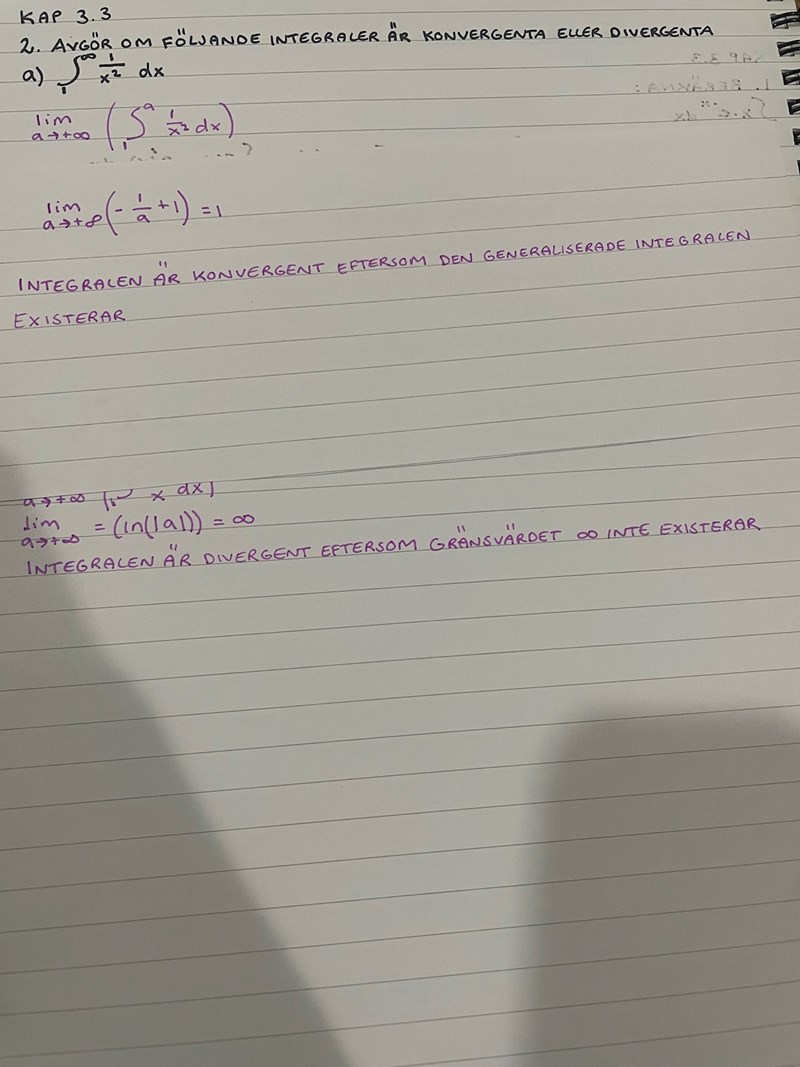 KAP 3.3
2. AVGÖR OM FÖLJANDE INTEGRALER ÄR KONVERGENTA ELLER DIVERGENTA
a) ∫₁^∞ 1/x² dx
lim a→+∞ (∫₁^a 1/x² dx)
lim a→+∞ (-1/a + 1) = 1
INTEGRALEN ÄR KONVERGENT EFTERSOM DEN GENERALISERADE INTEGRALEN
EXISTERAR
a→+∞ x dx
lim a→+∞ = (ln(|a|)) = ∞
INTEGRALEN ÄR DIVERGENT EFTERSOM GRÄNSVÄRDET ∞ INTE EXISTERAR